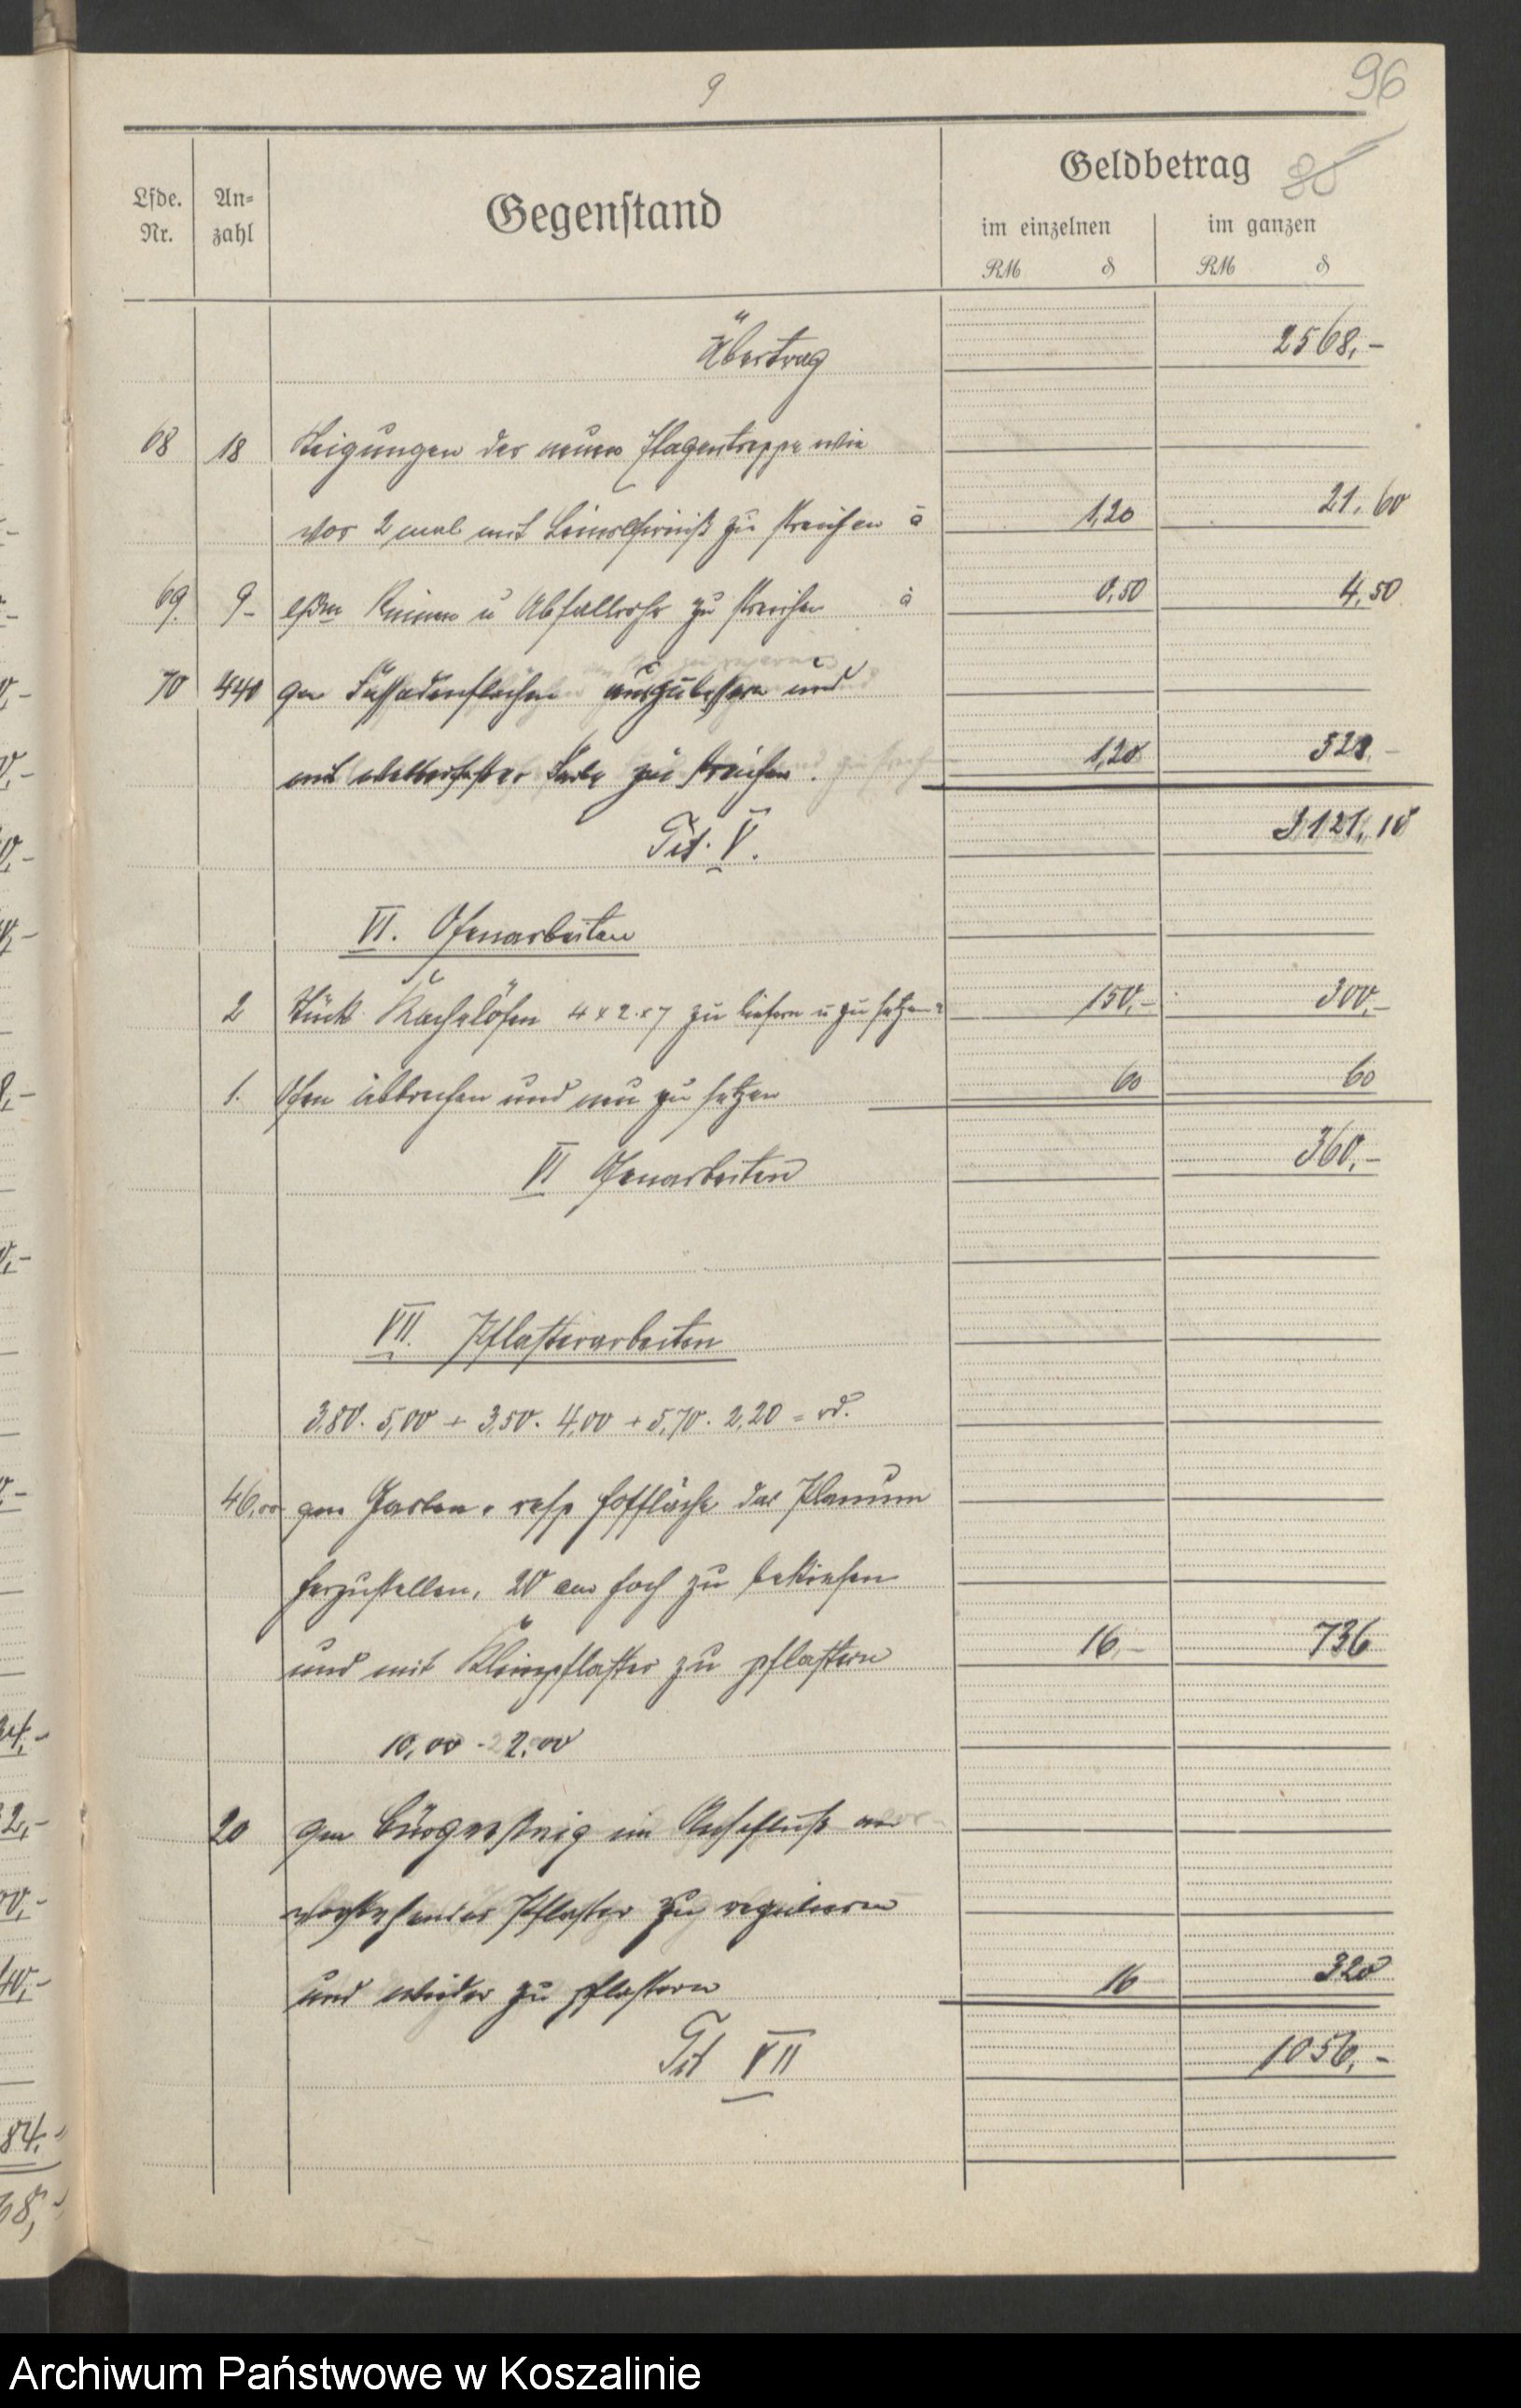 9
96
Lfde. Nr.
An-zahl
Gegenstand
Geldbetrag
85
im einzelnen
im ganzen
RM ₰
RM ₰
Übertrag 2568,-
68 18 Steigungen der neuen Etagentreppe wie
vor 2 mal mit Leinölfirniß zu streichen à 1,20 21,60
69. 9- lfdm Rinnen u Abfallrohr zu streichen à 0,50 4,50
70 440 qm Fassadenflächen auszubessern und
mit wetterfester Farbe zu streichen. 1,20 528.-
Tit. V. 3121,10
VI. Ofenarbeiten
2 Stück Kachelöfen 4 x 2 x 7 zu liefern u zu setzen à 150,- 300,-
1. Ofen abbrechen und neu zu setzen 60 60
VI Ofenarbeiten 360,-
VII. Pflasterarbeiten
3,80 . 5,00 + 3,50 . 4,00 + 5,70 . 2,20 = rd.
46,00 qm Garten- resp Hoffläche das Planum
herzustellen, 20 cm hoch zu bekiesen
und mit Kleinpflaster zu pflastern 16,- 736
10,00 - 2,00
20 qm Bürgersteig im Anschluß
vorstehendes Pflaster zu regulieren
und wieder zu pflastern 16 320
Tit VII 1056,-
84,-
68,-
Archiwum Państwowe w Koszalinie